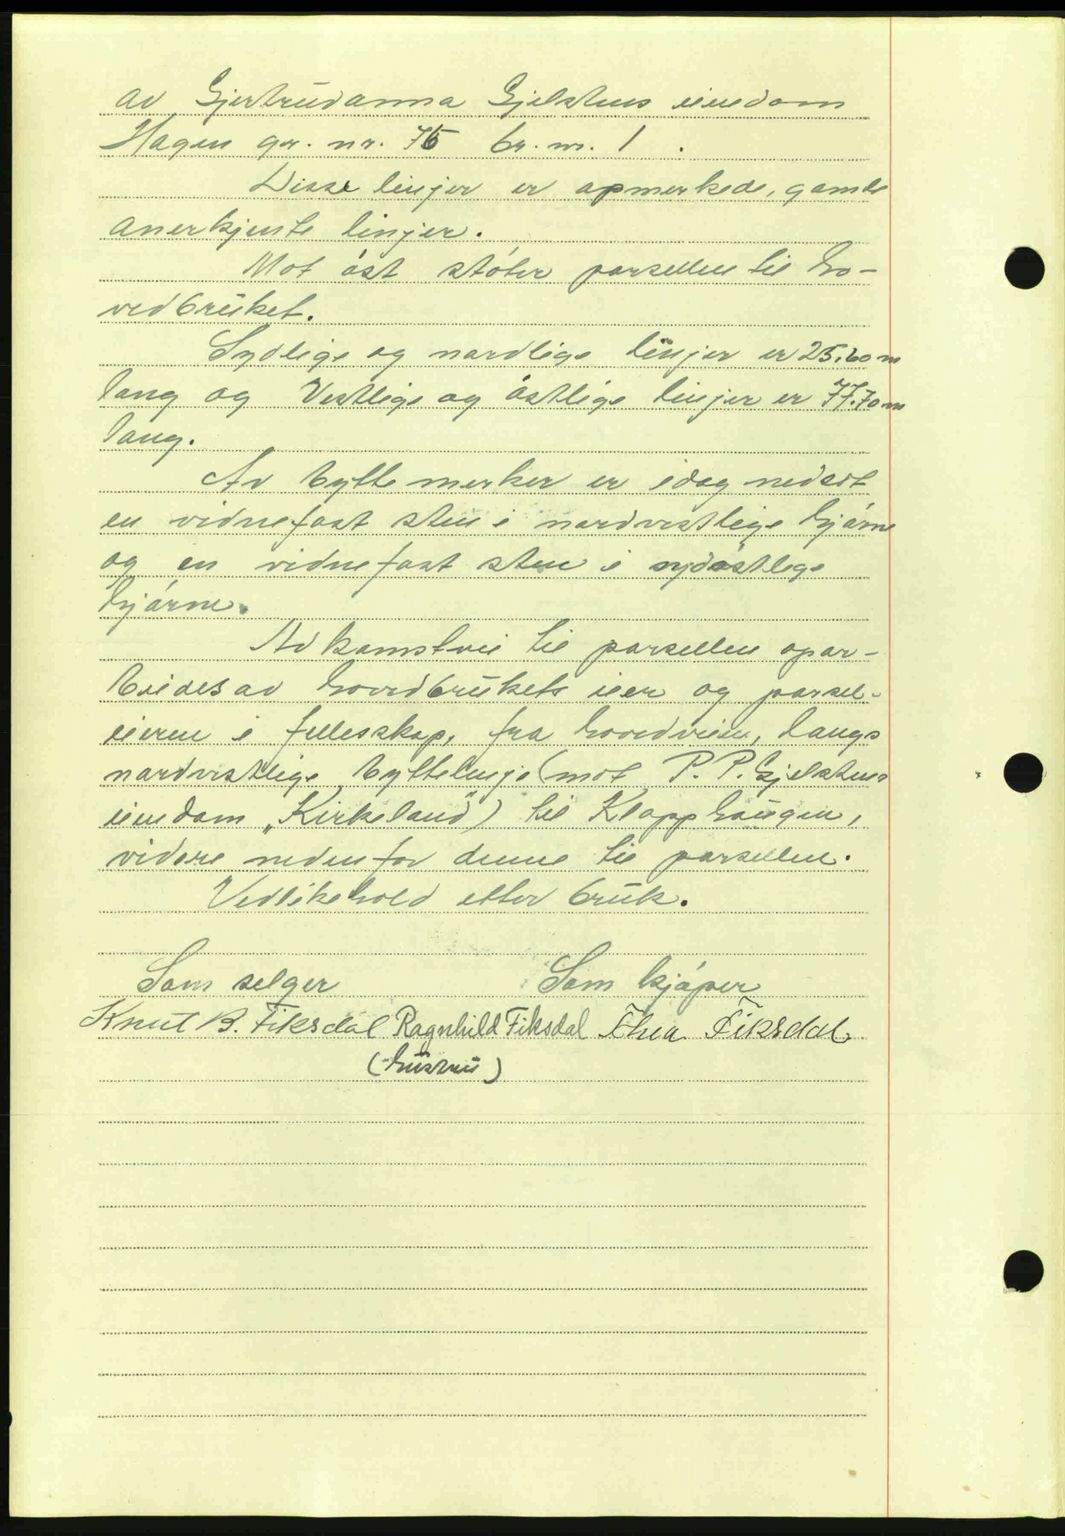 av Gjertrudanna Gjelstens eiendom
Hagen gr. nr. 75 br. nr. 1.
Disse linjer er opmerkede, gamle
anerkjente linjer.
Mot øst støter parsellen til ho-
vedbruket.
Sydlige og nordlige linjer er 25,60 m
lang og Vestlige og østlige linjer er 77.70 m
lang.
Av byttemerker er idag nedsat
en vidnefast sten i nordvestlige hjørne
og en vidnefast sten i sydøstlige
hjørne.
Adkomstvei til parsellen opar-
beides av hovedbrukets eier og parsel-
eieren i fellesskap, fra hovedveien, langs
nordvestlige byttelinje (mot P. P. Gjelstens
eiendom „Kirkeland") til Klopphaugen,
videre nedenfor denne til parsellen.
Vedlikehold etter bruk.
Som selger Som kjøper
Knut B. Fiksdal Ragnhild Fiksdal Thea Fiksdal
(hustru)